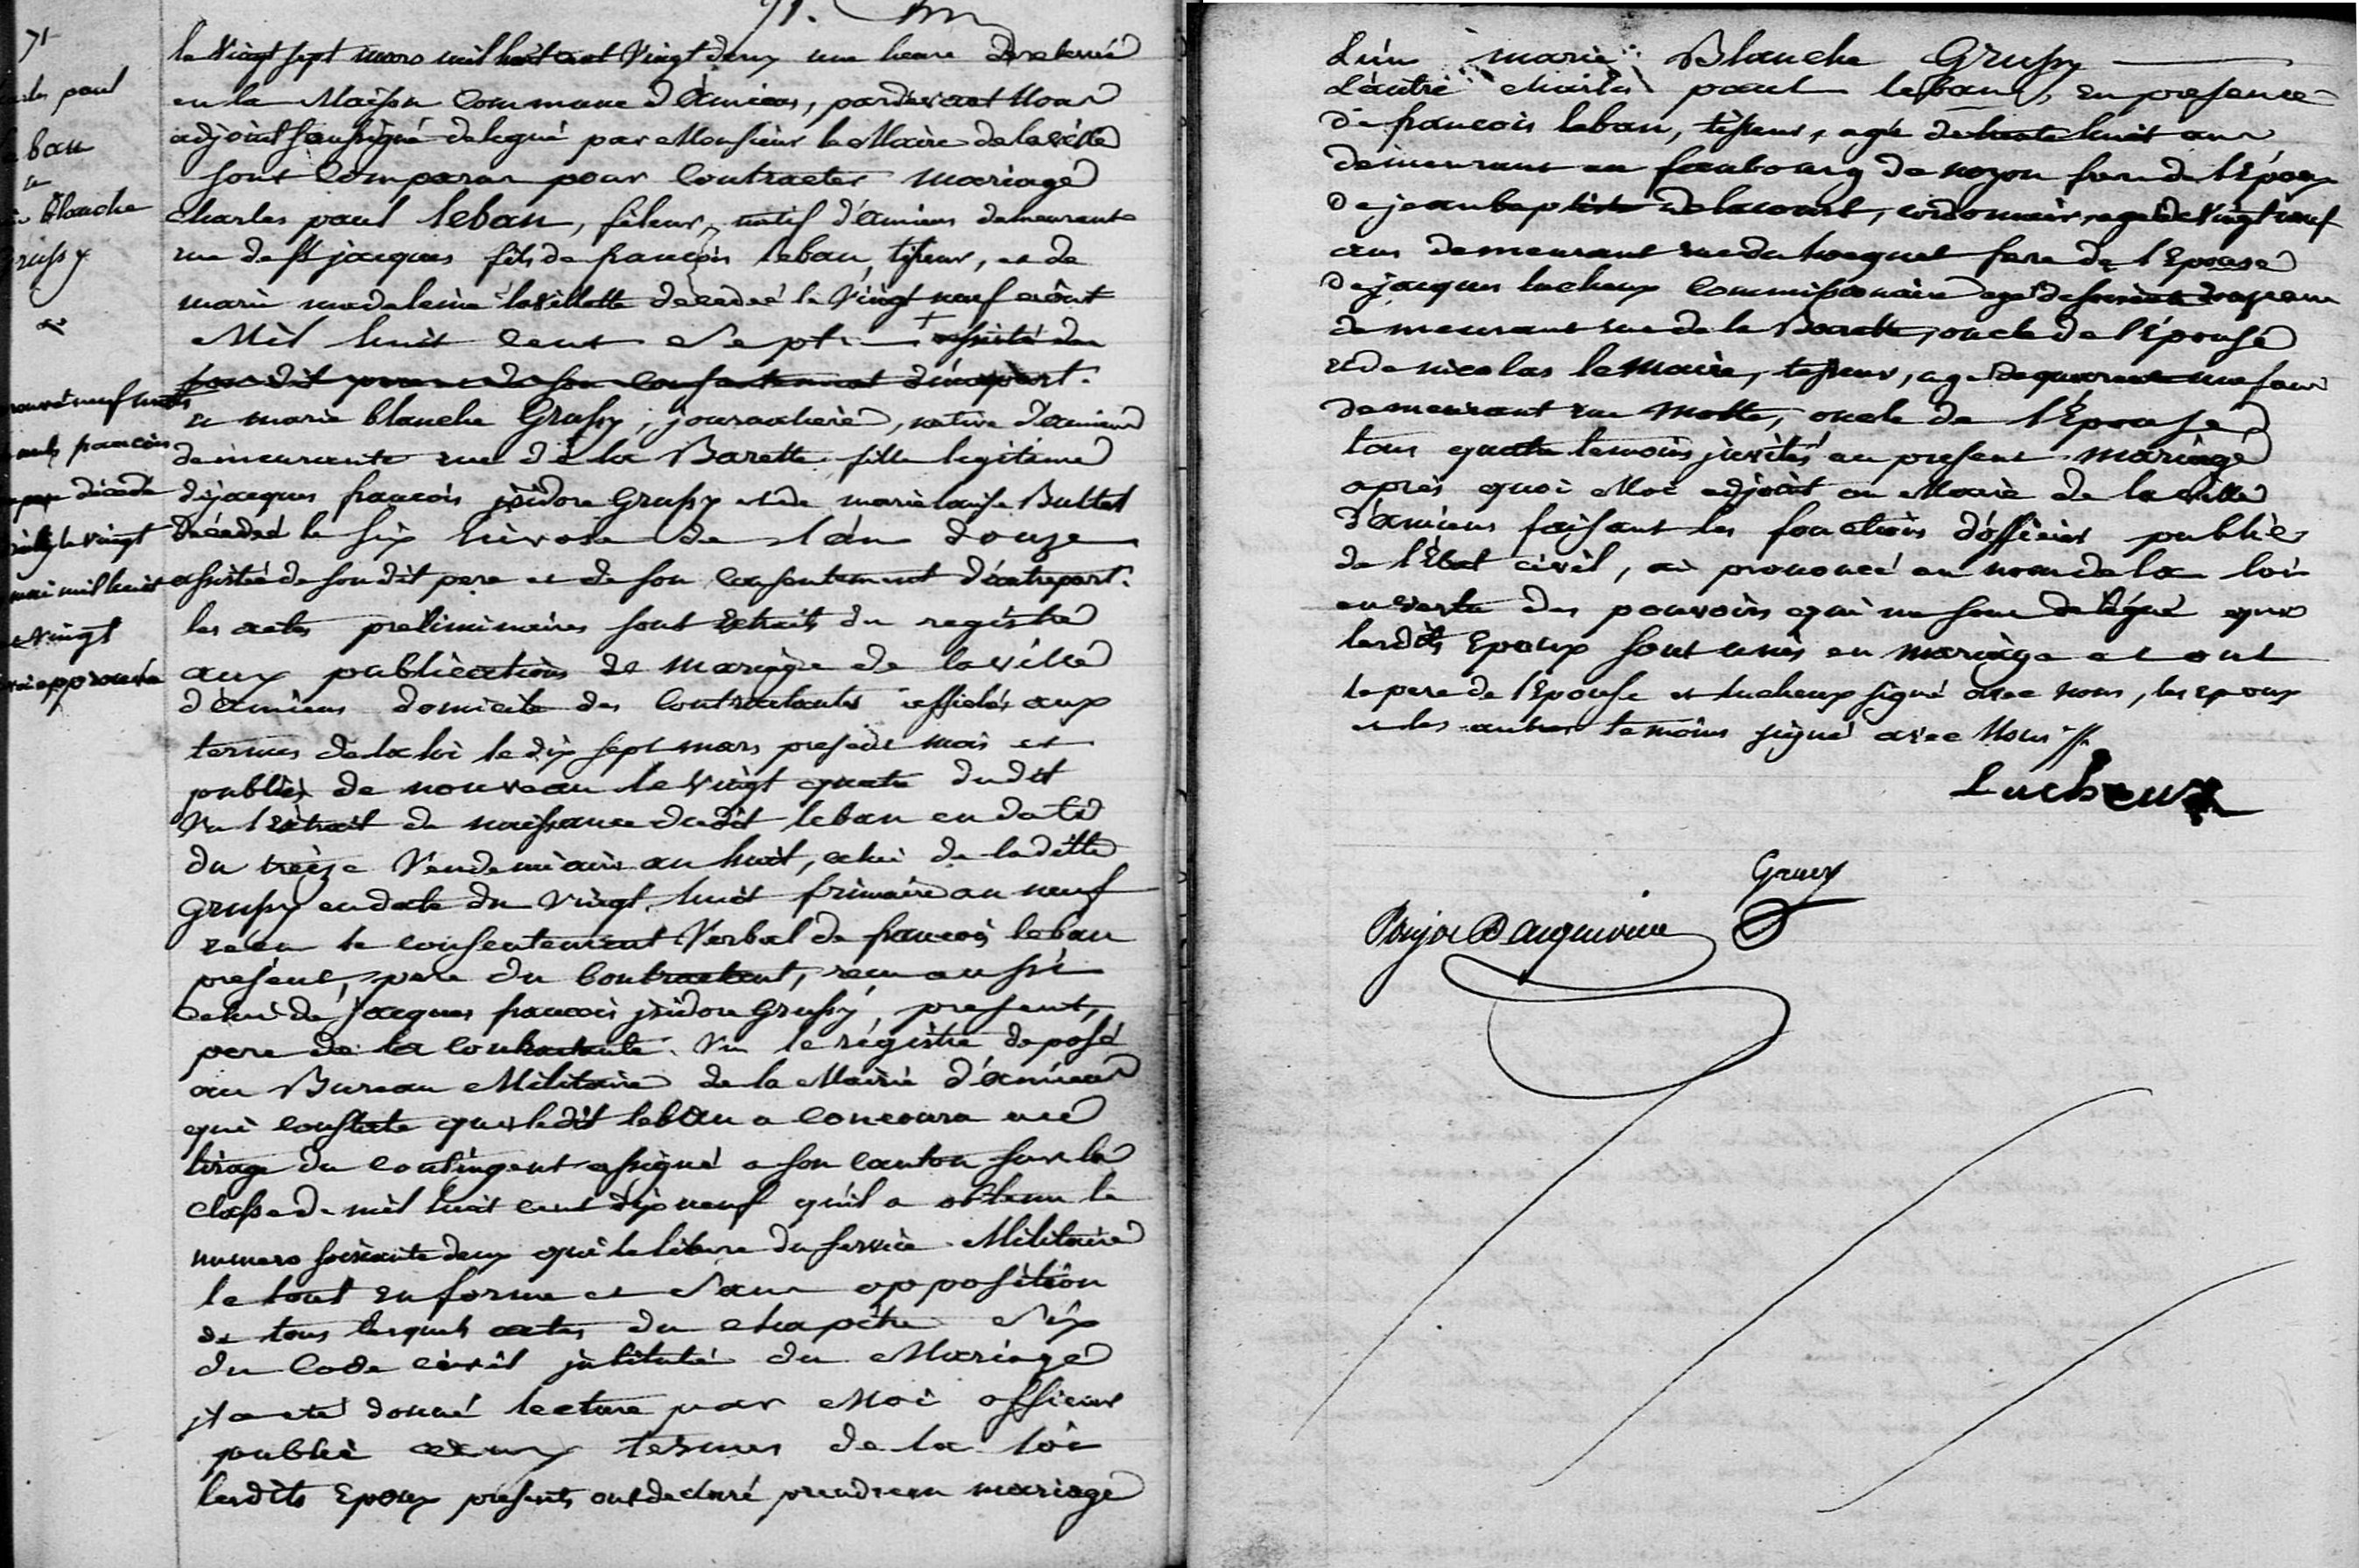 71.
71
paul
leban
et
blanche
Grussy
le Vingt sept mars mil huit cent Vingt deux une heure de relevée
en la Maison Commune d'Amiens, pardevant Nous
adjoint soussigné delegué par Monsieur le Maire de la ville
sont Comparus pour Contracter mariage
Charles paul leban, fileur, natif d'amiens demeurant
rue de st jacques fils de francois leban, tisseur, et de
marie madeleine lavillette décedeé le Vingt neuf août
Mil huit Cent Sept + assisté du
son dit pere et de son consentement d'une part.
et marie blanche Grussy, journaliere, native d'amiens
demeurante rue de la Barette fille legitime
de jacques francois jsidore Grussy et de marie louise Bultel
décedeé le six nivose de l'an douze
assistée de son dit pere et de son consentement d'autre part.
neuf mots
francois
pere décedé
le vingt
mai mil huit
Vingt
approuvé
les actes preliminaires sont extraits du registre
aux publications de mariage de la ville
d'amiens domicile des Contractants affichés aux
termes de la loi le dix sept mars present mois et
publiés de nouveau le vingt quatre dudit
Vu l'extrait de naissance dudit leban en date
du treize Vendemiaire an huit, celui de ladite
grussy en date du vingt huit frimaire an neuf
recu le consentement Verbal de francois leban
présent, pere du Contractant, recu aussi
Celui de jacques francois jsidore Grussy, present,
pere de la Contractante. Vu le régistre deposé
au Bureau Militaire de la Mairie d'amiens
qui constate que ledit leban a concouru au
tirage du contingent assigné a son canton sur la
classe de mil huit cent dix neuf qu'il a obtenu le
numero soixante deux qui le libere du service Militaire
le tout en forme et Sans opposition
de tous lesquels actes du chapitre Six
du Code civil jntitulé du Mariage
jl a eté donné lecture par Moi officier
public aux termes de la loi
lesdits Epoux présents ont declaré prendre en mariage
L'un marie Blanche Grussy
L'autre charles paul leban, en presence
de francois leban, tisseur, agé de huit ans
demeurant au faubourg de noyon pere de l'Epoux
De jean baptiste Delacourt, cordonnier, agé de vingt neuf
ans demeurant rue du hocquet frere de l'Epouse
De jacques lucheux Commissionaire agé de soixante ans
demeurant rue de la Barette, oncle de l'épouse
et de nicolas lemaire, tisseur, agé de quarante neuf ans
demeurant rue Motte, oncle de l'Epouse
tous quatre temoins jnvités au present mariage
après quoi Moi adjoint au Maire de la ville
d'amiens faisant les fonctions d'officier public
de l'Etat civil, ai prononcé au nom de la loi
en vertu des pouvoirs qui me sont délégué que
lesdits Epoux sont unis en mariage et ont
le pere de l'Epouse et lucheux signé avec nous, les epoux
et les autres temoins signé avec Nous
Lucheux
Grussy